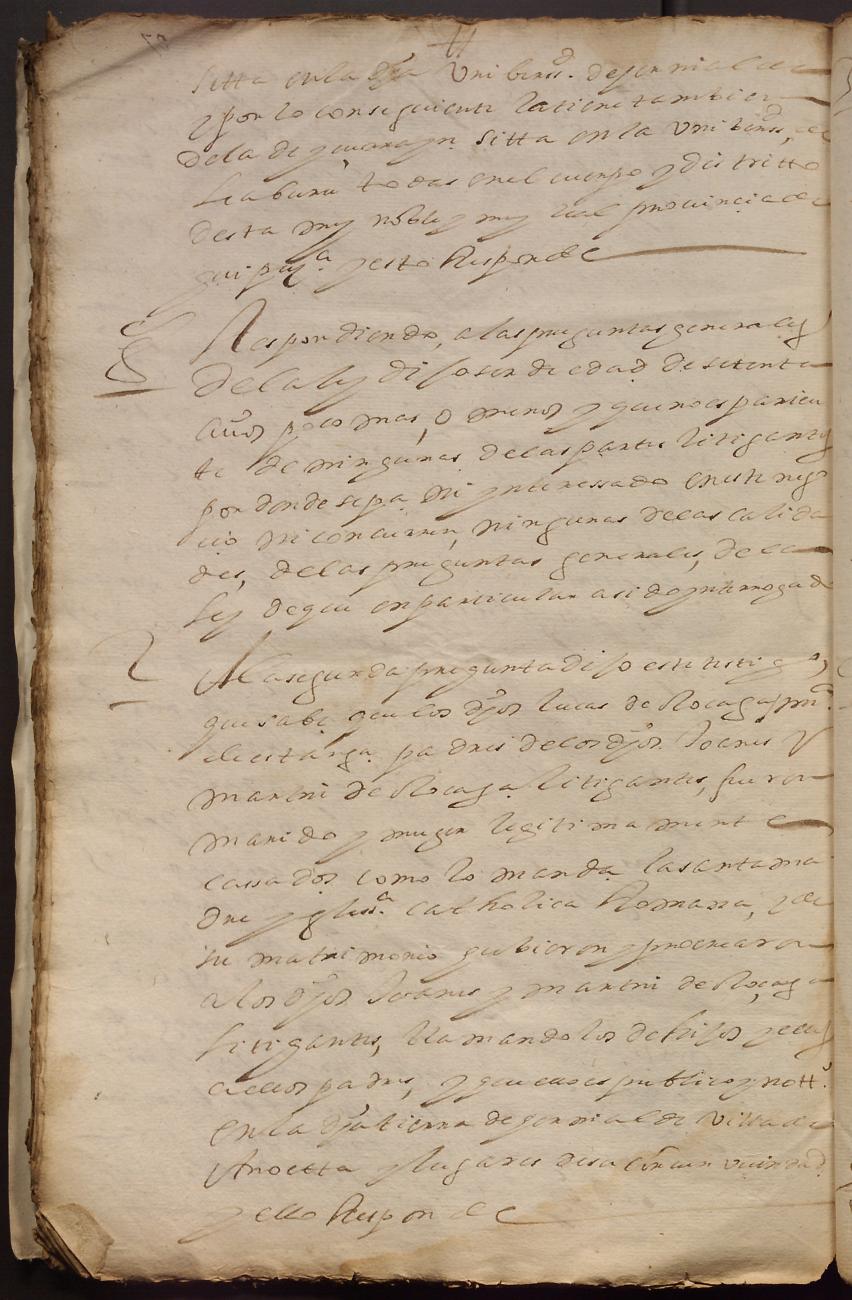 sitta en la dha Unibersd. de
y por lo consiguiente la tiene tambien
de la de sitta en la Unibersd. de
todas en el cuerpo y distritto
desta muy noble y muy leal provincia de
guipuza. y esto Responde
g Respondiendo, a las preguntas generales
de la ley dijo ser de edad de setenta
años poco mas, o menos y que no es parien
te de ningunas de las partes litigantes
por donde sepa ni ynteressado en este nego
cio ni concurren, ningunas de las calida
des, de las preguntas generales, de la
ley de que en particular a sido ynterrogado
2 A la segunda pregunta dijo este testigo,
que save que los dhos lucas de y
padres de los dhos Joanes y
martin de litigantes, fueron
marido y muger legitimamente
cassados como lo manda la santa ma
dre yglessa. catholica Romana, y de
su matrimonio hubieron y procrearon
a los dhos Joanes y martin de
litigantes, llamandolos de hijos y ellos
a ellos padres, y que ello es publico y nottº
en la dha tierra de villa de
Anoetta y lugares de su circun vecindad
y ello Responde